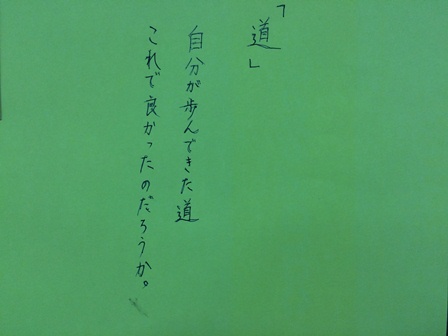 「道」
自分が歩んできた道
これで良かったのだろうか。